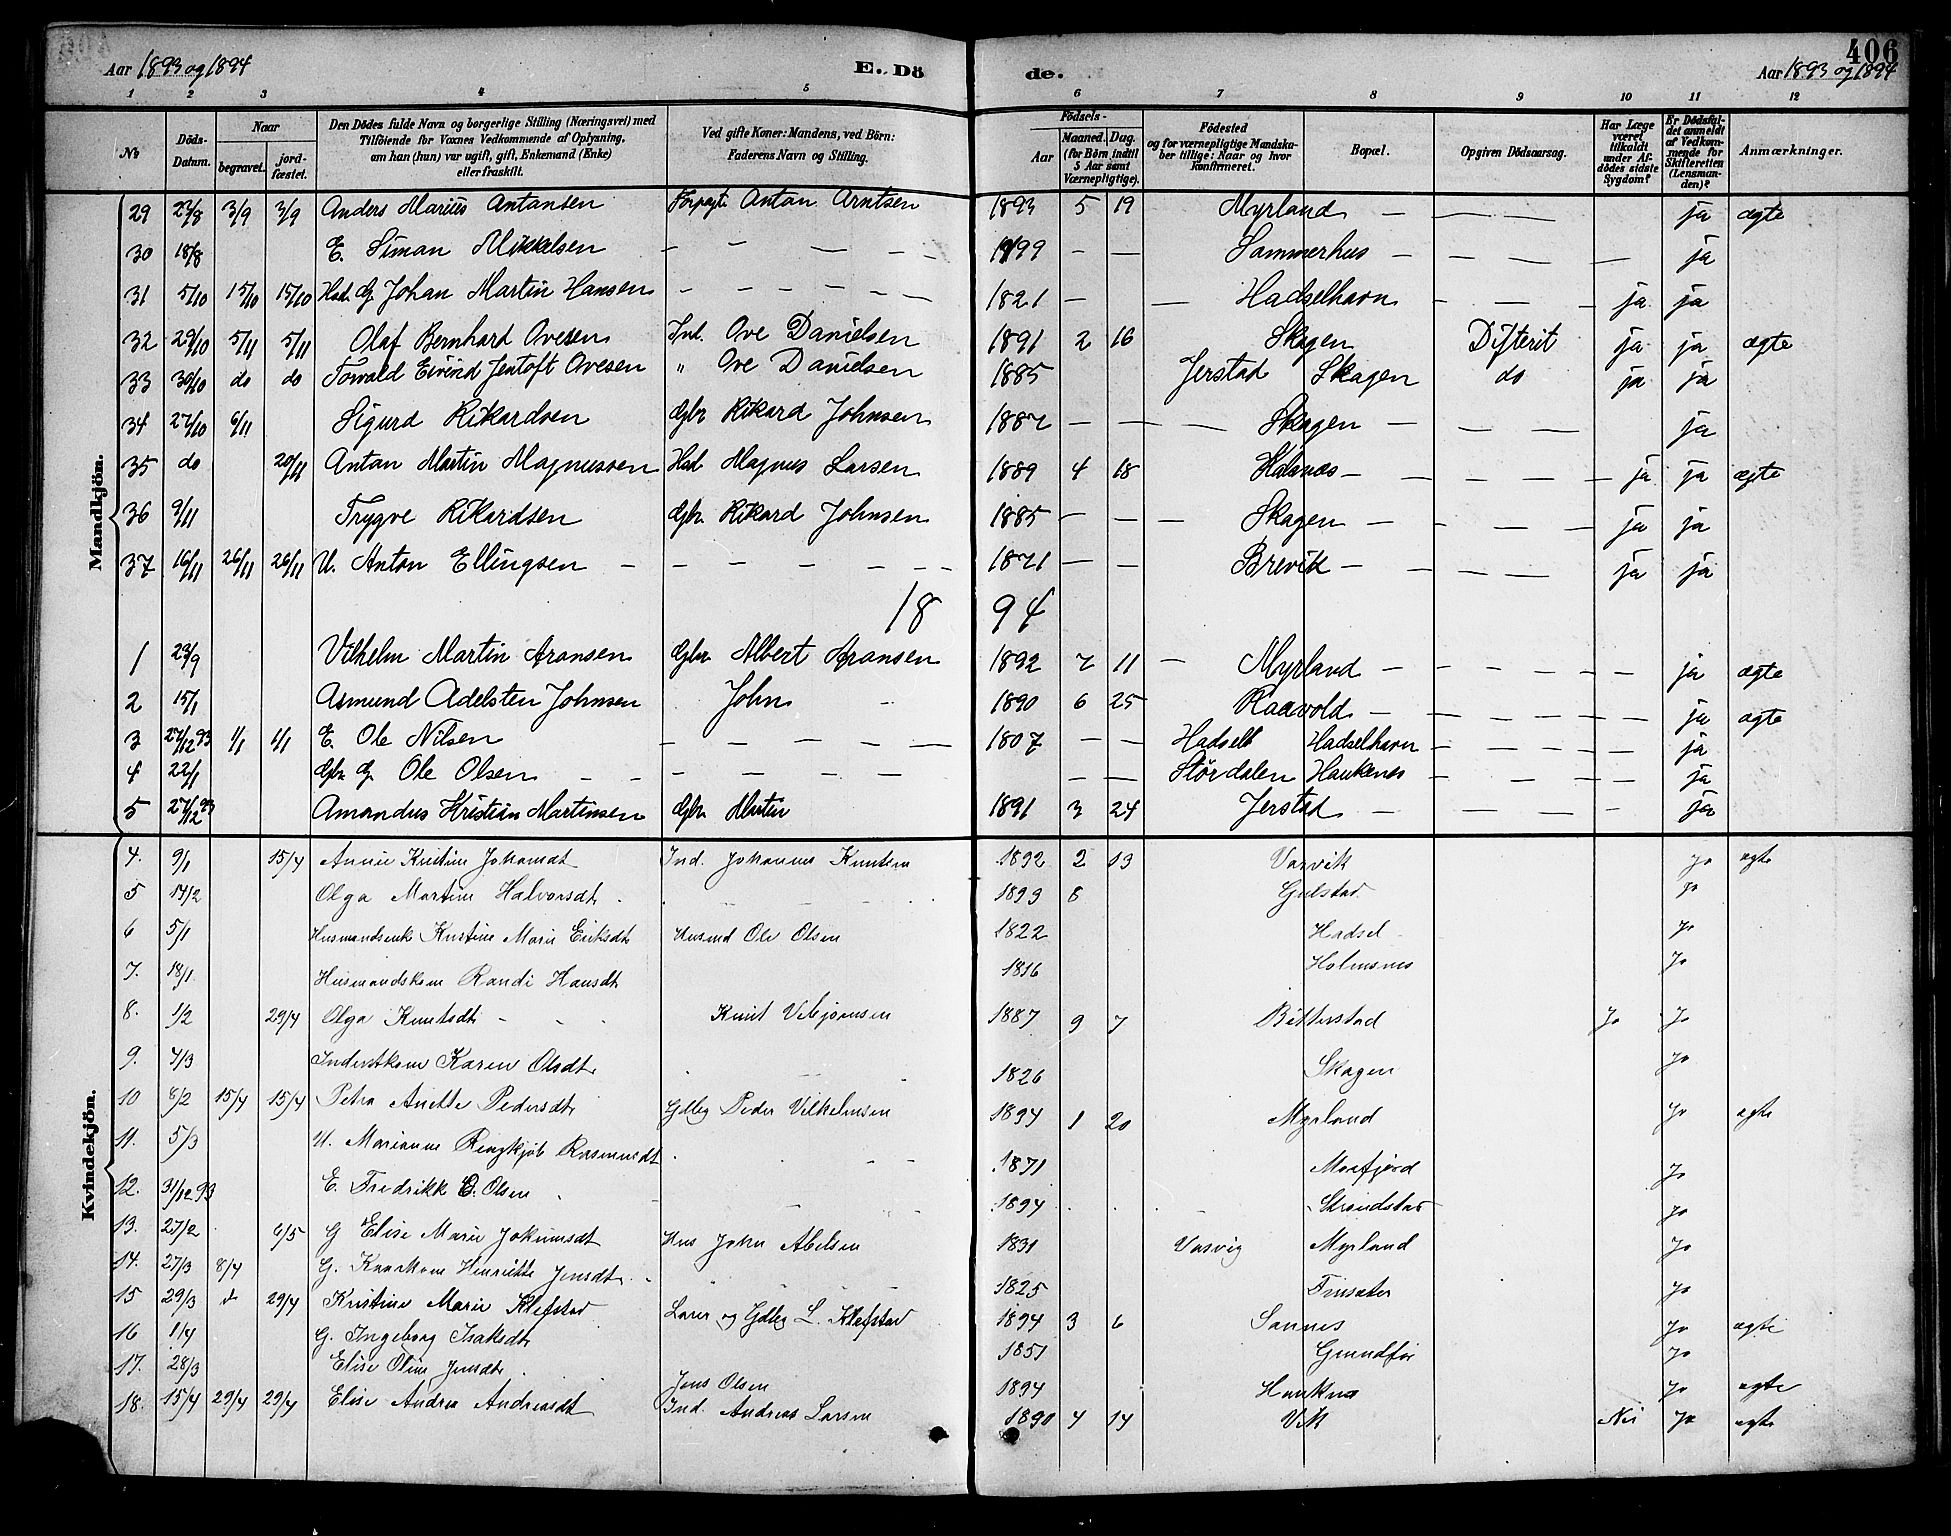 406
Aar 1893 og 1894 E. Dö de. Aar 1893 og 1894
1 2 3 4 5 6 7 8 9 10 11 12
No. Döds-Datum. Naar begravet. jord-fæstet. Den Dödes fulde Navn og borgerlige Stilling (Næringsvei) med Tilföiende for Voxnes Vedkommende af Oplysning, om han (hun) var ugift, gift, Enkemand (Enke) eller fraskilt. Ved gifte Koner: Mandens, ved Börn: Faderens Navn og Stilling. Födsels- Aar Maaned. Dag. (for Börn indtil 5 Aar samt Værnepligtige). Födested og for værnepligtige Mandskaber tillige: Naar og hvor konfirmeret. Bopæl. Opgiven Dödsaarsag. Har Læge været tilkaldt under Afdödes sidste Sygdom? Er Dödsfaldet anmeldt af Vedkommende for Skifteretten (Lensmanden)? Anmærkninger.
Mandkjön.
29 22/8 3/9 3/9 Anders Marius Antonsen Anton Arntsen 1893 5 19 Myrland — — — — ja ægte
30 18/8 E. Siman Mikkelsen — — — — — 1799 — — Sommerhus — — — — — ja
31 5/10 15/10 15/10 G. Johan Martin Hansen — — — — — — 1821 — — Hadselhavn — — — ja ja
32 29/10 5/11 5/11 Olaf Bernhard Ovesen Ind. Ove Danielsen 1891 2 16 Skagen Difterit ja ja ægte
33 30/10 do do Torvald Eivind Jentoft Ovesen " Ove Danielsen 1885 Jerstad Skagen do ja ja
34 27/10 6/11 Sigurd Rikardsen Gbr Rikard Johnsen 1887 — — — — Skagen — — — ja
35 do 20/11 Anton Martin Magnussen Magnus Larsen 1889 4 18 Holsnæs — — — — — ja ja ægte
36 9/11 Trygve Rikardsen Gbr. Rikard Johnsen 1885 — — — Skagen — — — — ja ja
37 16/11 26/11 26/11 U. Anton Ellingsen — — — — — — — 1871 — — Brevik — — — — ja ja
18 94
1 23/9 Vilhelm Martin Aronsen Gbr Albert Aronsen 1892 7 11 — Myrland — — — — — — ja ægte
2 15/1 Asmund Adelsten Johnsen John 1890 6 25 Raavold — — — — — — ja ægte
3 27/12 93 1/1 1/1 E. Ole Nilsen — — — — — 1807 — — Hadsel Hadselhavn — — — — — ja
4 22/1 Gbr G. Ole Olsen — — — — — — — — Stördalen Haukenes — — — — — ja
5 27/12 93 Amandus Kristian Martinsen Gbr Martin 1891 3 24 Jerstad — — — — — ja
Kvindekjön.
4. 9/1 15/4 Anne Kristine Johansdt Ind. Johannes Knutsen 1892 2 13 Vasvik Ja ægte
5 14/2 Olga Martine Halvorsdt 1893 8 Gulstad Ja
6 5/1 Kristine Marie Eriksdt Husmd Ole Olsen 1822 Hadsel Ja
7. 18/1 Husmandskone Randi Hansdt 1816 Holmsnes Ja
8. 1/2 29/4 Olga Knutsdt — — — Knut Vebjörnsen 1887 9 7 Bitterstad Ja Ja
9. 4/3 Inderstkone Karen Olsdt. 1826 Skagen Ja
10 8/2 15/4 15/4 Petra Anette Pedersdt Gdbrg Peder Vilhelmsen 1894 1 20 Myrland Ja ægte
11. 5/3 U. Marianne Ringkjöb Rasmusdt 1871 Morfjord Ja
12. 31/12 93 E. Fredrikke C. Olsen 1894 Strandstad Ja
13. 27/2 6/5 G Elise Marie Jokumsdt Hus John Abelsen 1831 Vasvig Myrland Ja
14. 27/3 8/4 G. Henriette Jensdt. 1825 Finsæter Ja
15 29/3 d 29/4 Kristine Marie Klefstad Lærer og Gdbrg L. Klefstad 1894 3 6 Sannes Ja ægte
16 1/4 G. Ingeborg Isaksdt 1851 Grundför Ja
17. 28/3 Elise Oline Jensdt. Jens Olsen 1894 Hauknes Ja ægte
18. 15/4 29/4 29/4 Elise Andrea Andreasdt Ind. Andreas Larsen 1890 4 14 Vik Nei Ja ægte